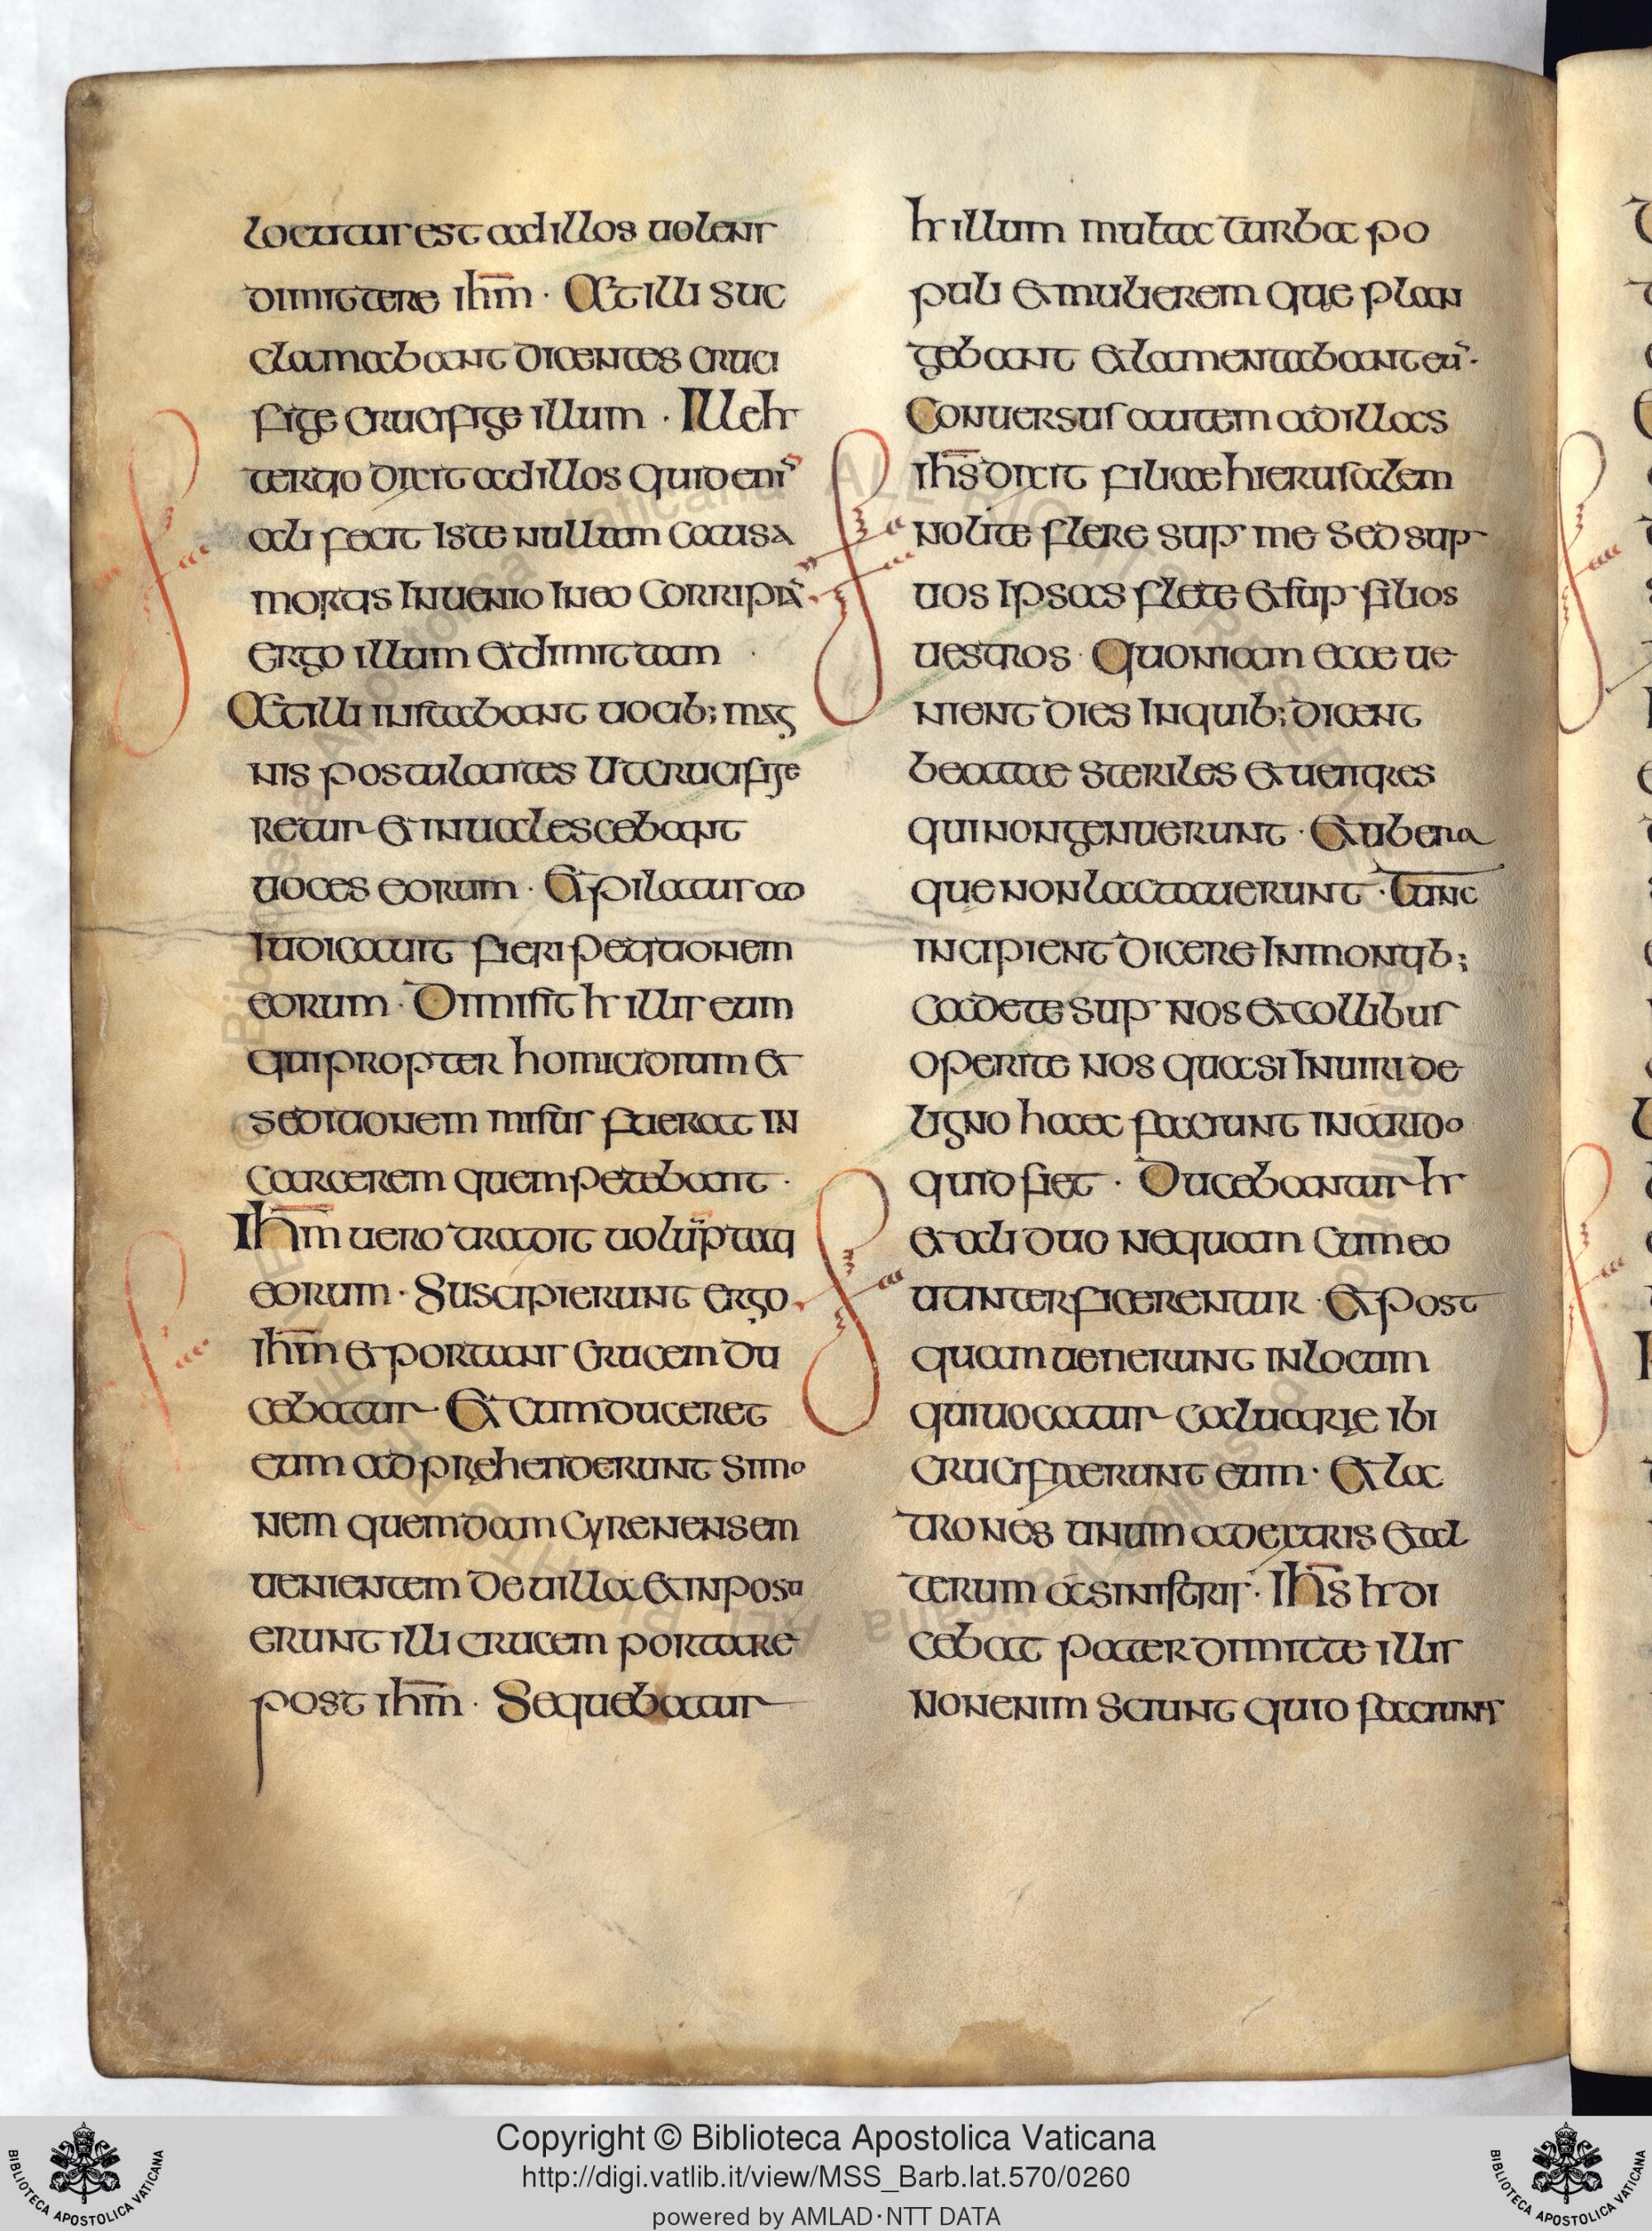 locutus est ad illos uolens
dimittere ihm̅ · At illi suc
clamabant dicentes cruci
fige crucifige illum · Ille hr
tertio dixit ad illos quid eni̅
ali fecit iste nullam causa
mortis inuenio in eo corripia̅
ergo illum et dimittam ·
At illi instabant uocib; mag
nis postulantes ut crucifige
retur et inualescebant
uoces eorum · Et pilatus ad
iudicauit fieri petitionem
eorum · Dimisit hr illis eum
qui propter homicidium et
seditionem missus fuerat in
carcerem quem petebant ·
Ihm̅ uero tradit uolu̅ptati
eorum · Suscipierunt ergo
ihm̅ et portans crucem du
cebatur Et cum duceret
eum adprehenderunt simo
nem quemdam cyrenensem
uenientem de uilla et inposu
erunt illi crucem portare
post ihm̅ · Sequebatur
hr illum multa turba po
puli et mulierem que plan
gebant et lamentabant eu̅ ·
Conuersus autem ad illas
ihs̅ dixit filiae hierusalem
nolite flere sup me sed sup
uos ipsas flete et sup filios
uestros · Quoniam ecce ue
nient dies in quib; dicent
beatae steriles et uentres
qui non genuerunt · Et ubera
que non lactauerunt · Tunc
incipient dicere in montib;
cadete sup nos et collibus
operite nos quasi in uiri de
ligno haec faciunt in arido
quid fiet · Ducebantur hr
et ali duo nequam cum eo
ut interficerentur · Et post
quam uenerunt in locum
qui uocatur caluarie ibi
crucifixerunt eum · Et la
trones unum a dextris et al
terum a sinistris · Ihs̅ hr di
cebat pater dimitte illis
non enim sciunt quid faciunt
Copyright © Biblioteca Apostolica Vaticana
http://digi.vatlib.it/view/MSS_Barb.lat.570/0260
powered by AMLAD·NTT DATA
BIBLIOTECA APOSTOLICA VATICANA
BIBLIOTECA APOSTOLICA VATICANA